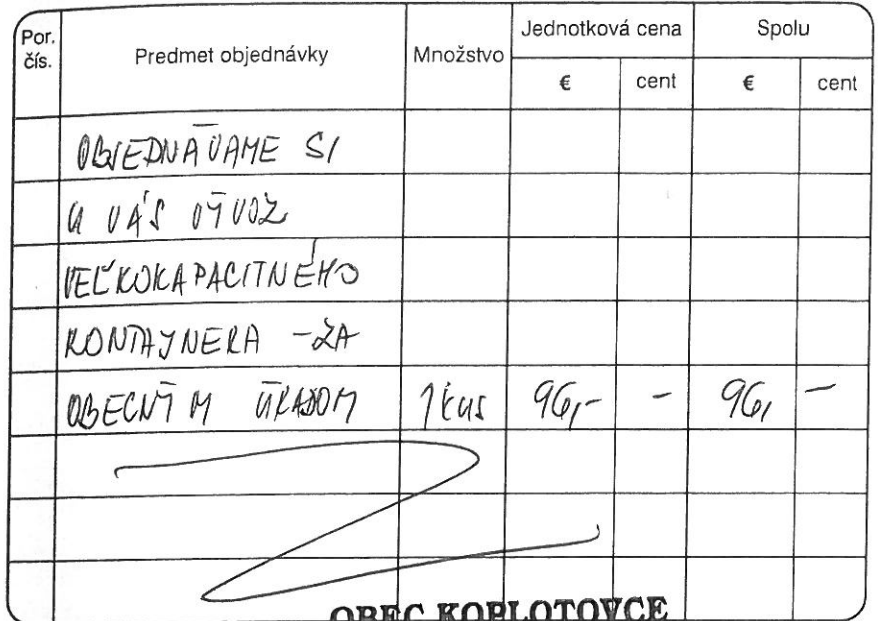 Por. čís. Predmet objednávky Množstvo Jednotková cena Spolu
€ cent € cent
OBJEDNÁVAME SI
U VÁS VÝVOZ
VEĽKOKAPACITNÉHO
KONTAJNERA - ZA
OBECNÝM ÚRADOM 1 kus 96,- - 96, -
OBEC KOPLOTOVCE